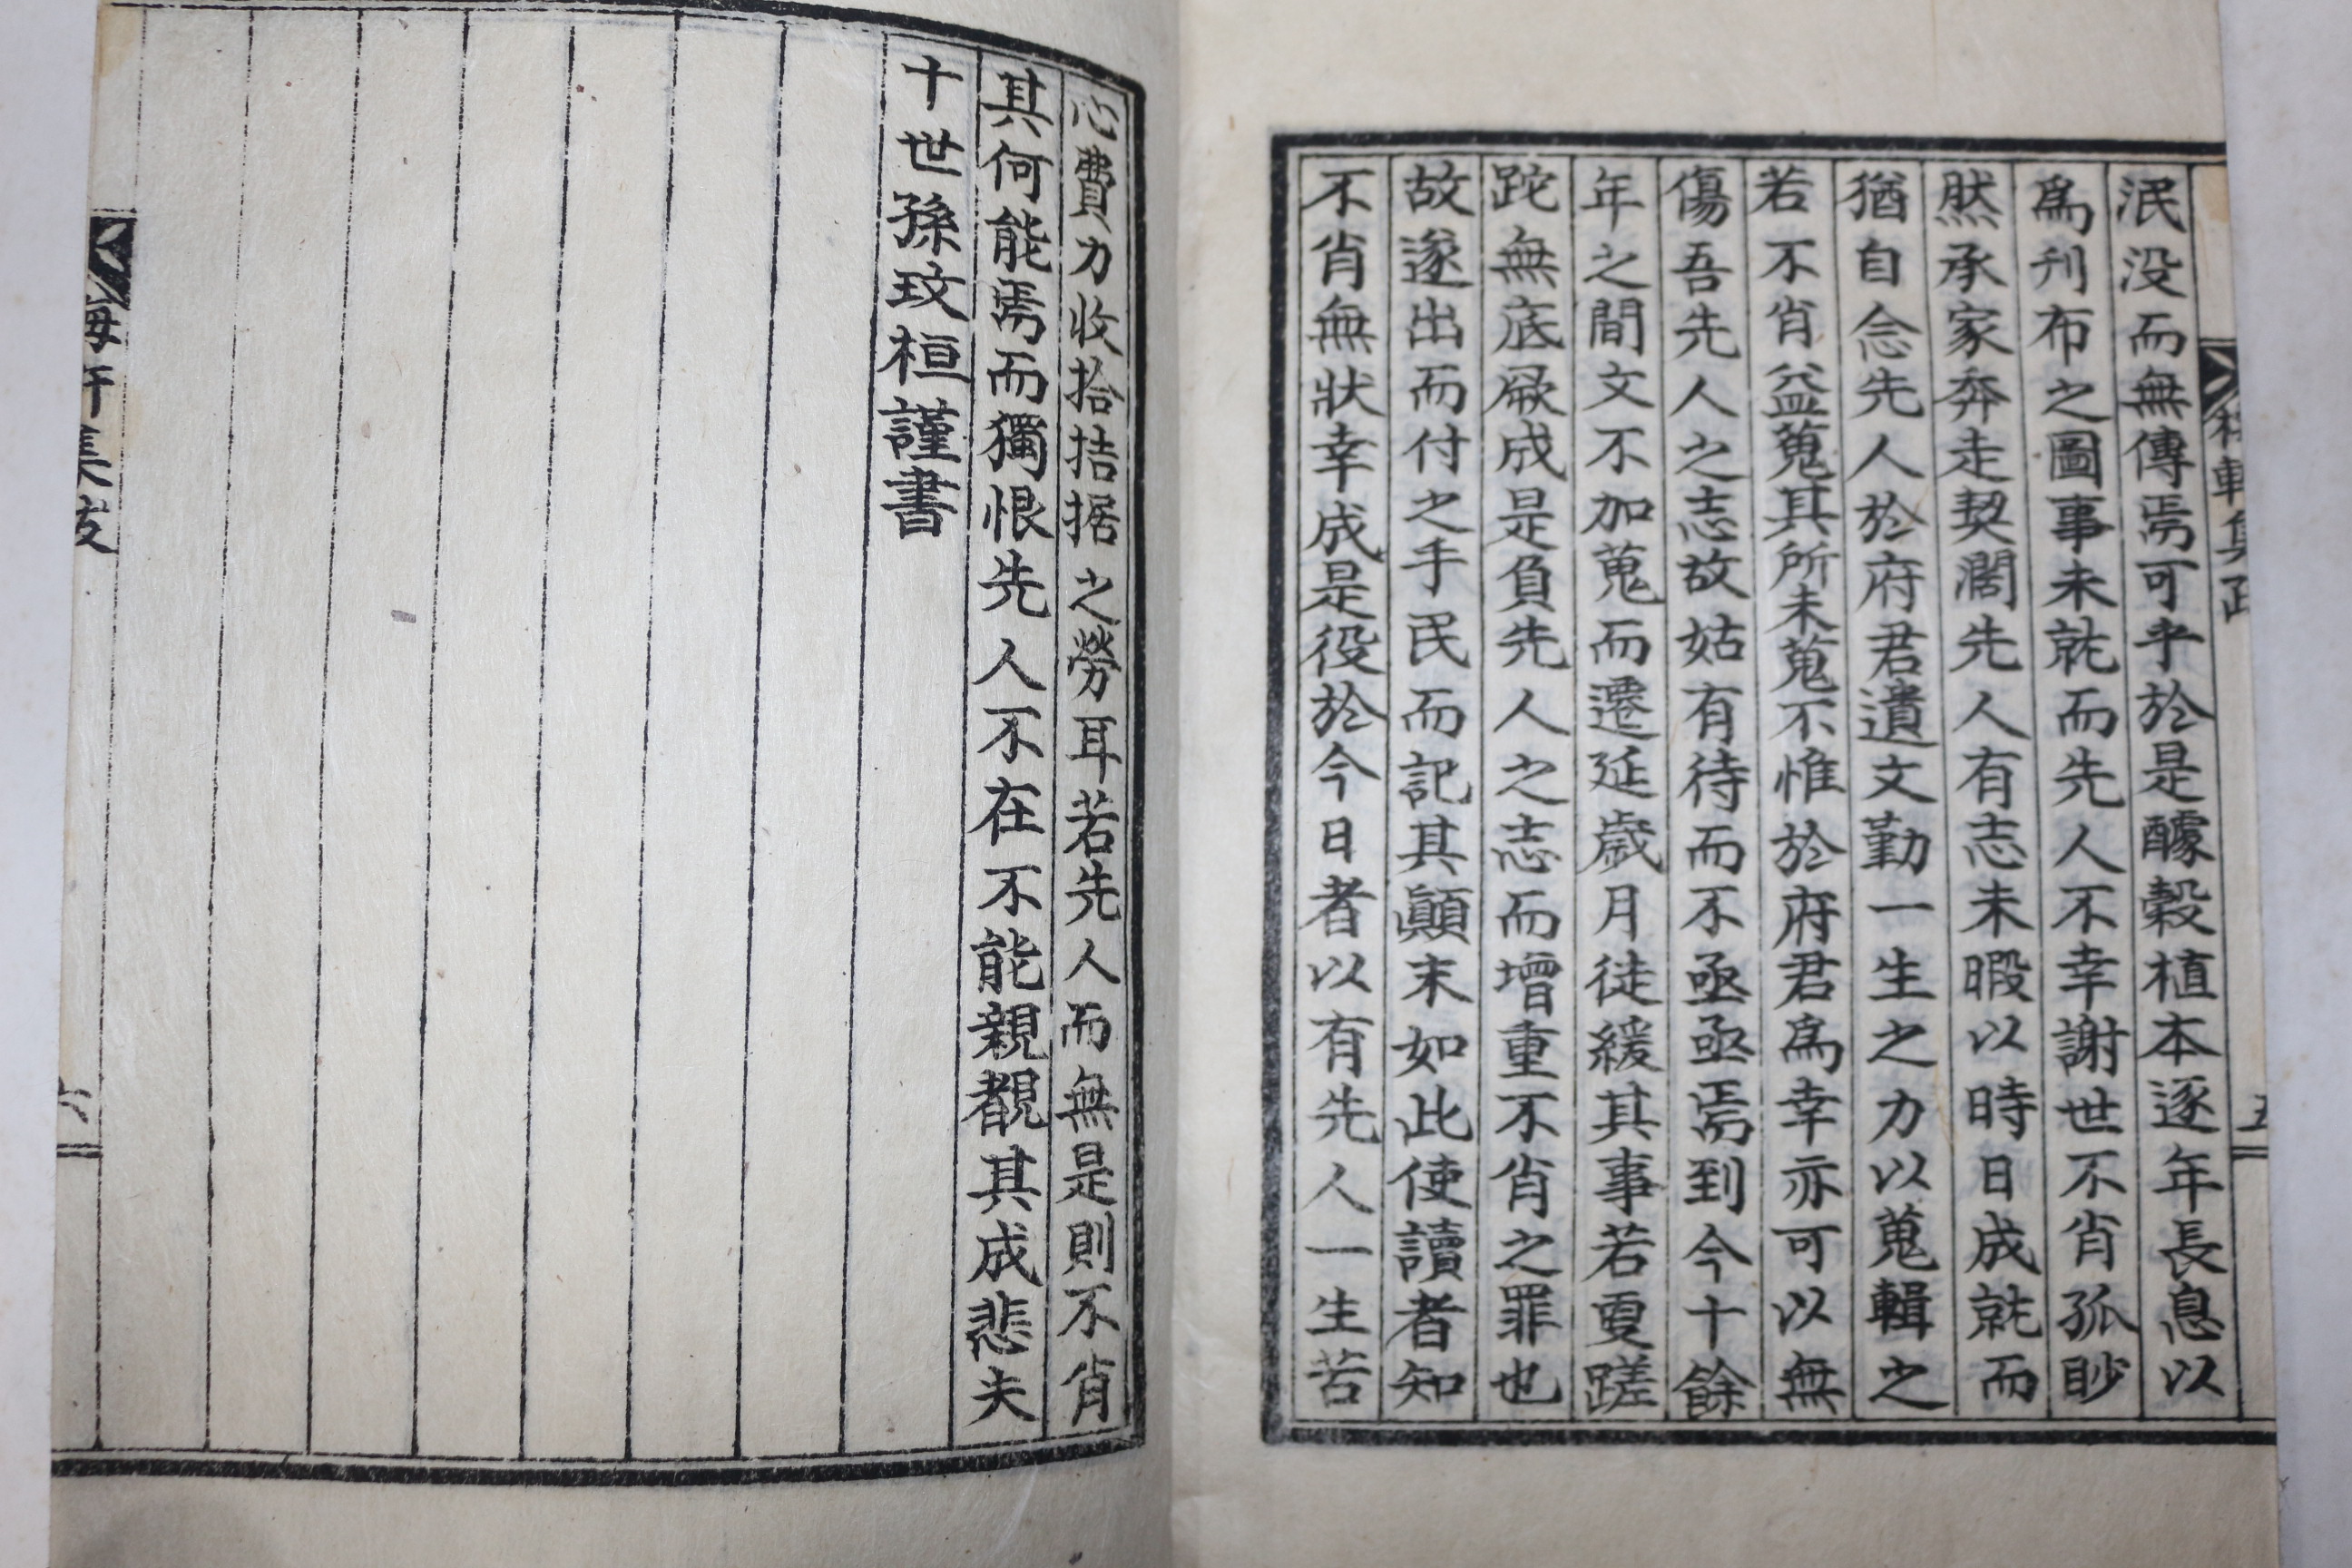 泯没而無傳焉可乎於是醵穀植本逐年長息以
爲刋布之圖事未就而先人不幸謝世不肖孤眇
然承家奔走契濶先人有志未暇以時日成就而
猶自念先人於府君遺文勤一生之力以蒐輯之
若不肖益蒐其所未蒐不惟於府君爲幸亦可以無
傷吾先人之志故姑有待而不亟亟焉到今十餘
年之間文不加蒐而遷延歲月徒緩其事若更蹉
跎無底厥成是負先人之志而增重不肖之罪也
故遂出而付之手民而記其顚末如此使讀者知
不肖無狀幸成是役於今日者以有先人一生苦
心費力收拾拮据之勞耳若先人而無是則不肖
其何能焉而獨恨先人不在不能親覩其成悲夫
十世孫玟桓謹書
軒集跋
六